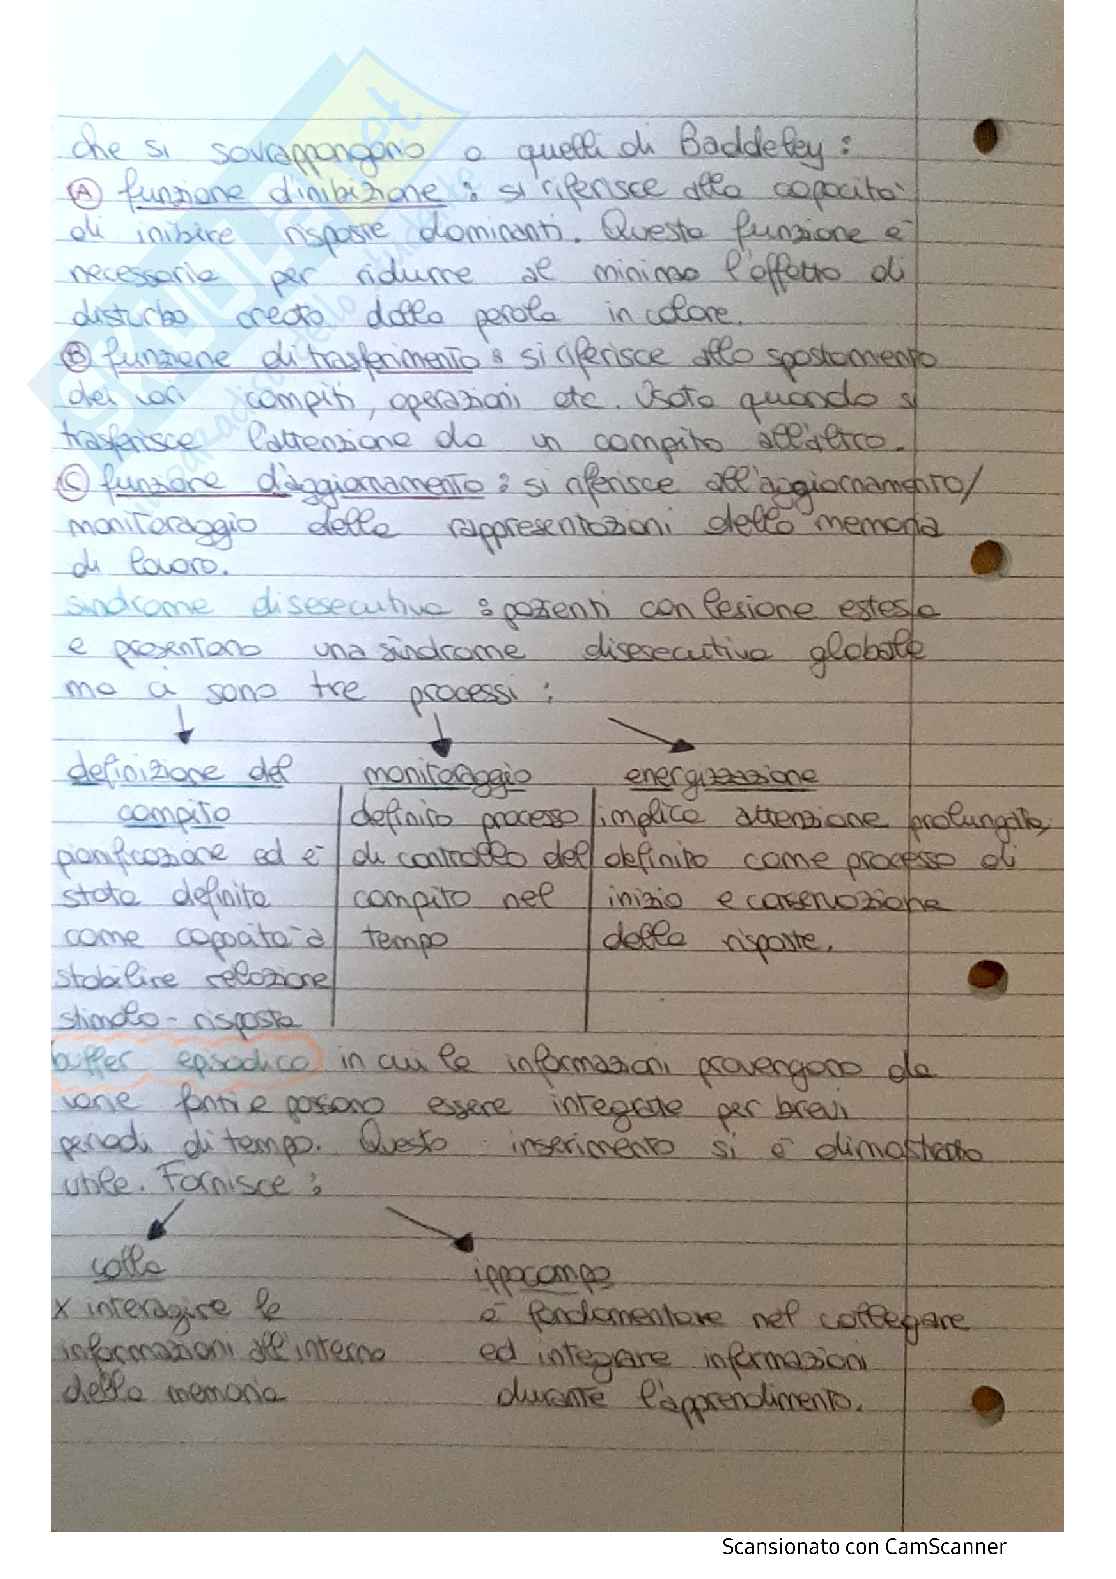 che si sovrappongono a quelli di Baddeley:
A funzione d'inibizione: si riferisce alla capacità
di inibire risposte dominanti. Questa funzione è
necessaria per ridurre al minimo l'effetto di
disturbo creato dalla parola in colore.
B funzione di trasferimento: si riferisce allo spostamento
dei vari compiti, operazioni etc. Usata quando si
trasferisce l'attenzione da un compito all'altro.
C funzione d'aggiornamento: si riferisce all'aggiornamento/
monitoraggio delle rappresentazioni della memoria
di lavoro.
sindrome disesecutiva: pazienti con lesione estesa
e presentano una sindrome disesecutiva globale
ma ci sono tre processi:
definizione del compito
pianificazione ed è
stata definita
come capacità a
stabilire relazione
stimolo-risposta
monitoraggio
definito processo
di controllo del
compito nel
tempo
energizzazione
implica attenzione prolungata,
definito come processo di
inizio e conservazione
delle risposte.
buffer episodico in cui le informazioni provengono da
varie fonti e possono essere integrate per brevi
periodi di tempo. Questo inserimento si è dimostrato
utile. Fornisce:
colla
x interagire le
informazioni all'interno
della memoria
ippocampo
è fondamentare nel collegare
ed integrare informazioni
durante l'apprendimento.
Scansionato con CamScanner